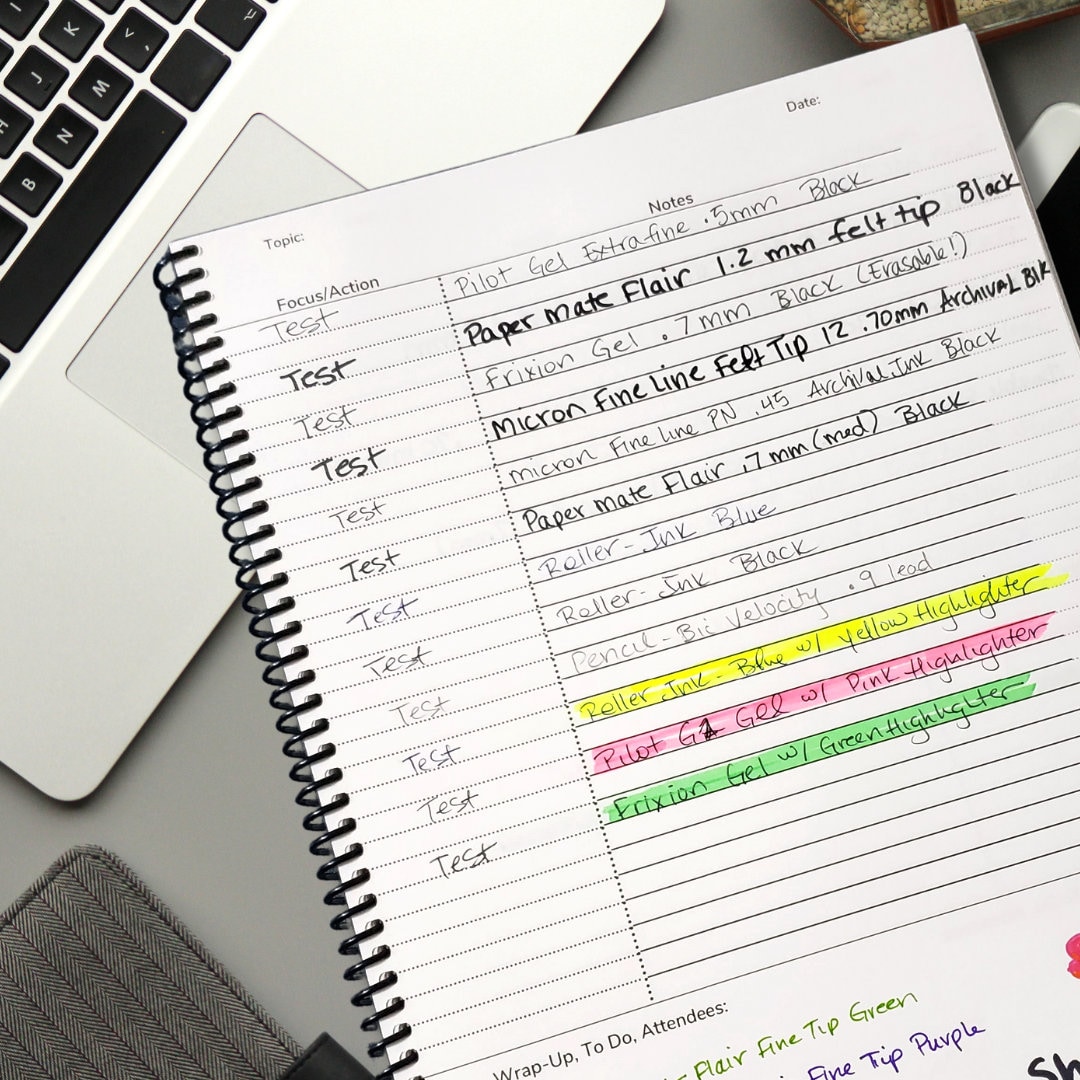 K
<
J
M
H
N
B
Date:
Topic:
Notes
Focus/Action
Test Pilot Gel Extrafine .5mm Black
Test Paper mate Flair 1.2 mm felt tip Black
Test Frixion Gel .7mm Black (Erasable!)
Test Micron Fine Line Felt Tip 12 .70mm Archival Blk
Test micron Fine line PN .45 Archival Ink Black
Test Paper mate Flair .7mm (med) Black
Test Roller-Ink Blue
Test Roller-Ink Black
Test Pencil-Bic Velocity .9 lead
Test Roller Ink - Blue w/ Yellow Highlighter
Test Pilot G2 Gel w/ Pink Highlighter
Test Frixion Gel w/ Green Highlighter
Wrap-Up, To Do, Attendees:
- Flair Fine Tip Green
Fine Tip Purple
Sh